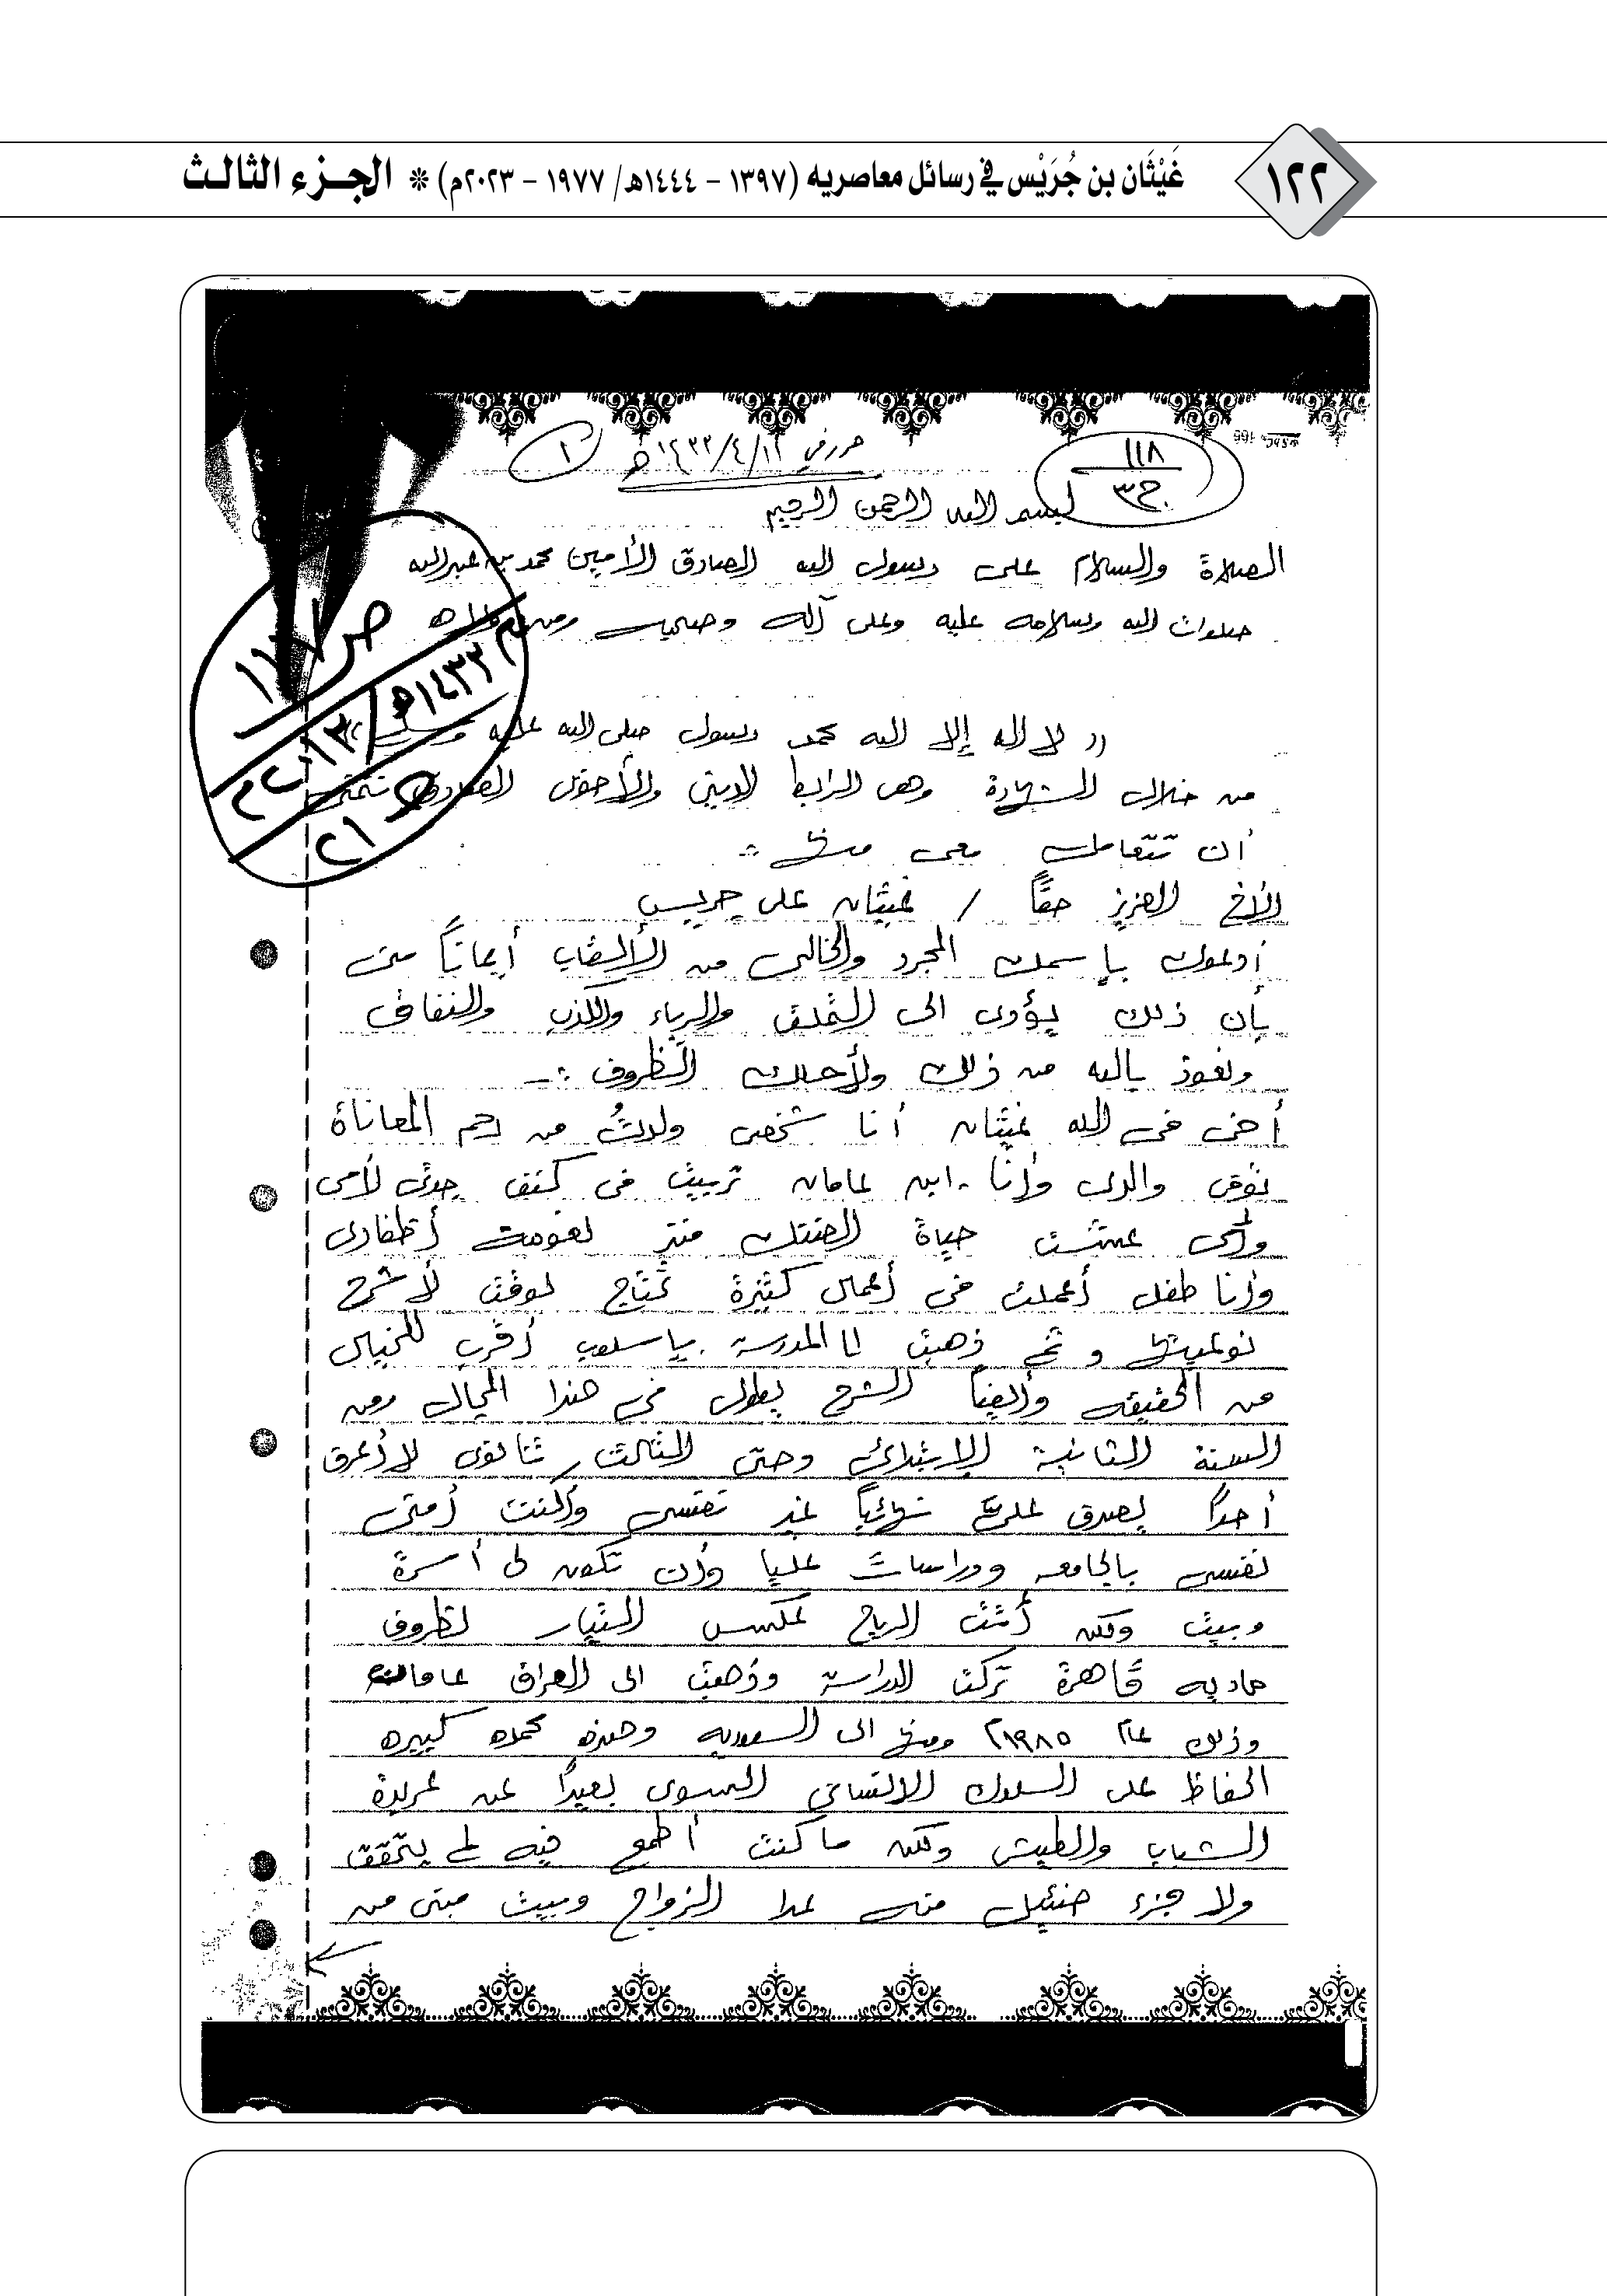 ١٢٢
غَيْثَان بن جُرَيْس في رسائل معاصريه (١٣٩٧ – ١٤٤٤هـ/ ١٩٧٧ – ٢٠٢٣م) * الجـزء الثالـث
١١٨
ج٣
حرر في ١٤٣٢/٤/١٢هـ
١
بسم الله الرحمن الرحيم
الصلاة والسلام على رسول الله الصادق الأمين محمد بن عبدالله
صلوات الله وسلامه عليه وعلى آله وصحبه ومن
ص/١١٧
١٤٣٢هـ/
٢١
(( لا إله إلا الله محمد رسول صلى الله عليه
من خلال الشهادة وهى الرابط الدينى والأخوى الصادق نتمنى
أن تتعامل معى
الأخ العزيز حقاً / غيثان على جريس
أدعوك بإسمك المجرد والخالى من الألقاب أيماناً منى
بأن ذلك يؤدى الى التملق والرياء والكذب والنفاق
ونعوذ بالله من ذلك ولأحلك الظروف :ـ
أخى فى الله غيثان أنا شخص ولدتُ من رحم المعاناة
توفى والدى وأنا ابن عامان تربيت فى كنف جدتى لأمى
وأمى عشت حياة الضنك منذ نعومت أظفارى
وأنا طفل أعملت فى أعمال كثيرة تحتاج لوقت لأشرح
نوعيتها و ثم ذهبت لا المدرسة بإسلوب أقرب للخيال
من الحقيقه وأيضاً الشرح يطول فى هذا المجال ومن
السنة الثانية الإبتدائى وحتى الثالث ثانوى لا أعرق
أحداً يصرف علىّ نهائياً غير نفسى وكنت أمنى
نفسى بالجامعه ودراسات عليا وأن تكون لى أسرة
وبيت ولكن أتت الرياح عكس التيار لظروف
ماديه قاهرة تركت الدراسة وذهبت الى العراق عامان
وذلك عام ١٩٨٥م ومنها الى السعوديه وهذه محمده كبيره
الحفاظ على السلوك الانسانى السوى بعيداً عن عربدة
الشباب والطيش ولكن ما كنت أطمع فيه لم يتحقق
ولا جزء ضئيل منه عدا الزواج وبيت مبنى من